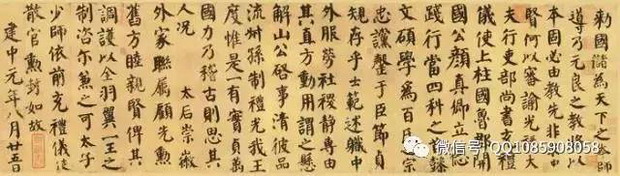 勅國儲為天下之本師
導乃元良之教將以
本固必由教先非求忠
賢何以審諭光祿大
夫行吏部尚書充禮
儀使上柱國魯郡開
國公顏真卿立德
踐行當四科之首懿
文碩學為百氏之宗
忠讜罄于臣節貞
規存乎士範述職中
外服勞社稷靜專由
其直方動用謂之懸
解山公啟事清彼品
流叔孫制禮光我王
度惟是一有實貞萬
國力乃稽古則思其
人況 太后崇徽
外家聯屬顧先勳
舊方睦親賢俾其
調護以全羽翼一王之
制咨爾兼之可太子
少師依前充禮儀使
散官勳封如故
建中元年八月廿五日
微信号: QQ1085908058